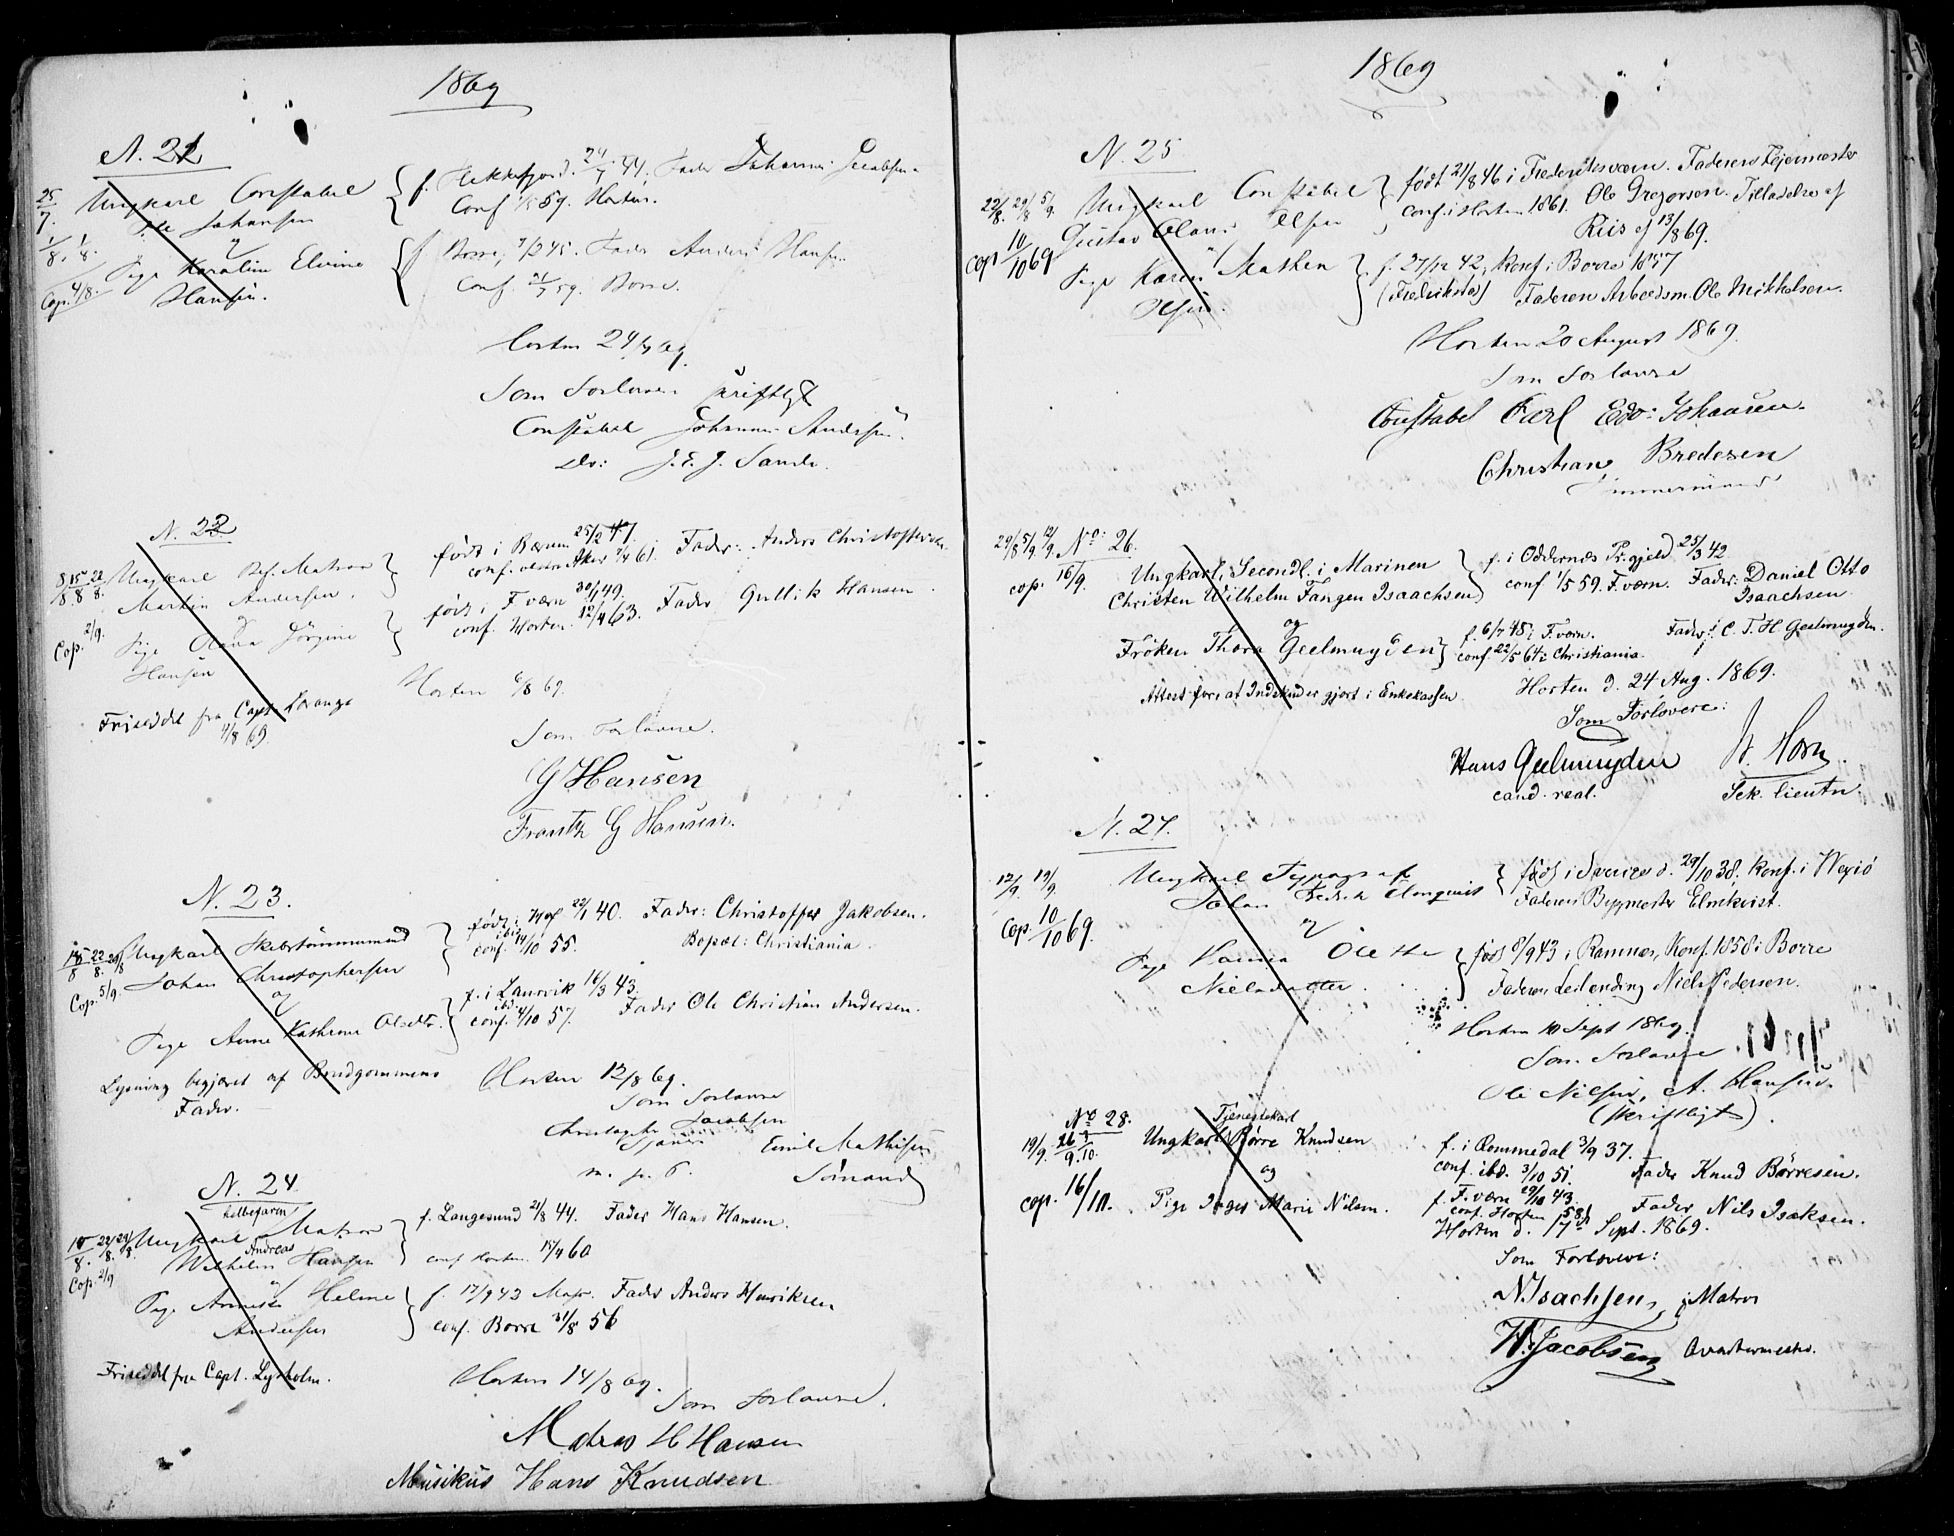 1869
N. 21
25/7. 1/8. 1/8.
Cop. 4/8.
Ungkarl Constabel
Ole Johansen
Pige Karoline Elvine
Hansen.
f. Flekkefjord 24/7 44. Fader Johannes Jacobsen.
Conf. 59. Horten.
f. Borre, 45. Fader Anders Hansen
Conf. 59. Borre.
Horten 24/7 69.
Som Forlovere skriftligt
Constabel Johannes Andersen.
J. E. J. Sande.
N. 22
8/8 15/8 22/8.
Cop. 2/9.
Ungkarl Ref. Matros
Martin Andersen.
Pige Olava Jörgine
Hansen
Friseddel fra Capt. Lorange
4/8 69.
født i Bærum 25/2 47. Fader: Anders Christoffersen.
conf. vestre Aker 61.
født i F.værn 30/1 49. Fader Gullik Hansen.
conf. Horten 12/4 63.
Horten 6/8 69.
Som Forlovere.
G Hansen
Frantz G Hansen.
N. 23.
15/8 22/8. 29/8
Cop. 5/9.
Ungkarl Skibstömmermand
Johan Christophersen
og
Pige Anne Kathrine Olsdtr.
Lysning begjæret af Brudgommens
Fader.
født i Hof 22/1 40. Fader: Christoffer Jakobsen.
conf. ibid. 14/10 55. Bopæl: Christiania.
f. i Laurvik 16/3 43. Fader Ole Christian Andersen.
conf. ibd. 4/10 57.
Horten 12/8 69.
Som Forlovere
Christopher Jacobsen
m. p. P.
Emil Mathisen
Sömand
N. 24.
helbefaren
15/8. 22/8. 29/8.
Cop. 2/9
Ungkarl Matros
Wilhelm Andreas Hansen
og
Pige Annette Helene
Andersen
Friseddel fra Capt. Lysholm.
f. Langesund 21/8 44. Fader Hans Hansen.
conf. Horten 15/4 60
f. 17/9 43 Fader Anders Henriksen
conf. Borre 31/8 56
Horten 14/8 69.
Som Forlovere.
Matros H Hansen
Musikus Hans Knudsen
1869
N. 25
22/8. 29/8 5/9.
Cop. 10/10 69
Ungkarl Constabel
Gustav Olaus Olsen
Pige Karen Mathea
Olsen.
født 21/8 46 i Frederiksværn. Faderen Töiemester
conf. i Horten 1861. Ole Gregorsen. Tilladelse af
Riis af 13/8 69.
f. 27/12 42, Konf. i Borre 1857
(Fredriksstad) Faderen Arbeidsm. Ole Mikkelsen.
Horten 20 August 1869.
Som Forlovere
Constabel Carl Edv: Johansen.
Christian Bredesen
Tømmermand
No. 26.
29/8 5/9 12/9
cop. 16/9.
Ungkarl, Secondl. i Marinen
Christen Wilhelm Fangen Isaachsen
og
Fröken Thora Geelmuyden
Attest for at Indskud er gjort i Enkekassen.
f. i Oddernes Pr.gjeld 25/3 42
conf 1/5 59. F.værn. Fader: Daniel Otto
Isaachsen.
f. 6/7 45 i F.værn. Fader: C. T. H Geelmuyden.
conf. 22/5 61 i Christiania.
Horten d. 24 Aug. 1869.
Som Forlovere:
Hans Geelmuyden
cand. real.
Horn.
Sek. lieutn
N. 27.
12/9. 19/9.
Cop. 10/10 69.
Ungkarl Typograf
Johan Fredrik Elmquist
og
Pige Hanna Olette
Nielsdatter.
født i Sverige d. 29/10 38. Konf. i Wexiö
Faderen Bygmester Elmkvist.
født 8/9 43 i Ramnæs, Konf. 1858 i Borre
Faderen Leilending Niels Pedersen.
Horten 10 Sept 1869.
Som Forlovere
Ole Nilsen, A. Hansen.
(Skriftligt).
No 28.
19/9. 26/9. 3/10.
cop. 16/10.
Tjenestekarl
Ungkarl Börre Knudsen
og
Pige Inger Marie Nilsen.
f. i Rommedal 3/9 37.
conf. ibd. 3/10 51. Fader Knud Börresen.
f. F.værn 29/10 43.
conf. Horten 58. Fader Nils Isaksen.
Horten d. 17de Sept. 1869.
Som Forlovere:
N. Isachsen, Matros
Jacobsen Qvartermester.